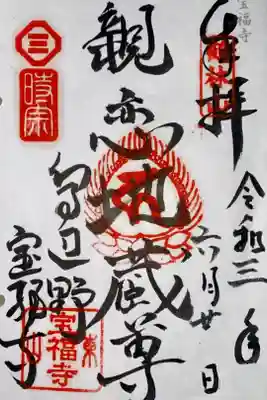 宝福寺
奉拝
令和三年
六月廿日
親恋地蔵尊
鳥辺野
宝福寺
三
時宗
宝福寺